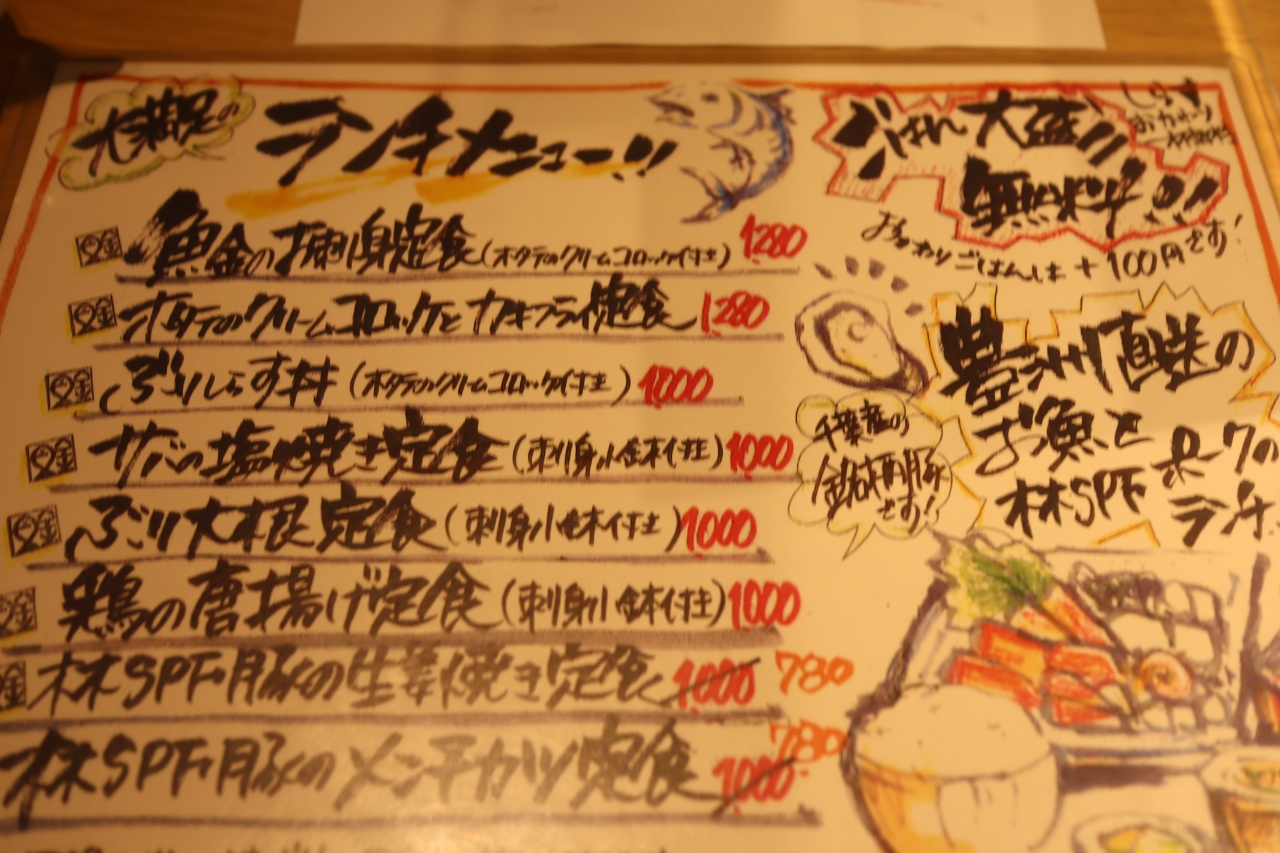 大満足の
ランチメニュー!!
魚金のお刺身定食(ホタテのクリームコロッケ付き) 1280
ホタテのクリームコロッケとカキフライ定食 1280
ぶりしらす丼(ホタテのクリームコロッケ付き) 1000
サバの塩焼き定食(刺身小鉢付き) 1000
ぶり大根定食(刺身小鉢付き) 1000
鶏の唐揚げ定食(刺身小鉢付き) 1000
林SPF豚の生姜焼き定食 1000 780
林SPF豚のメンチカツ定食 1000 780
ごはん大盛り
無料!!
しらす
おかわり
おかわりごはんは+100円です!
豊洲直送の
お魚と
林SPFポークの
ランチ
千葉産の
銘柄豚
です!